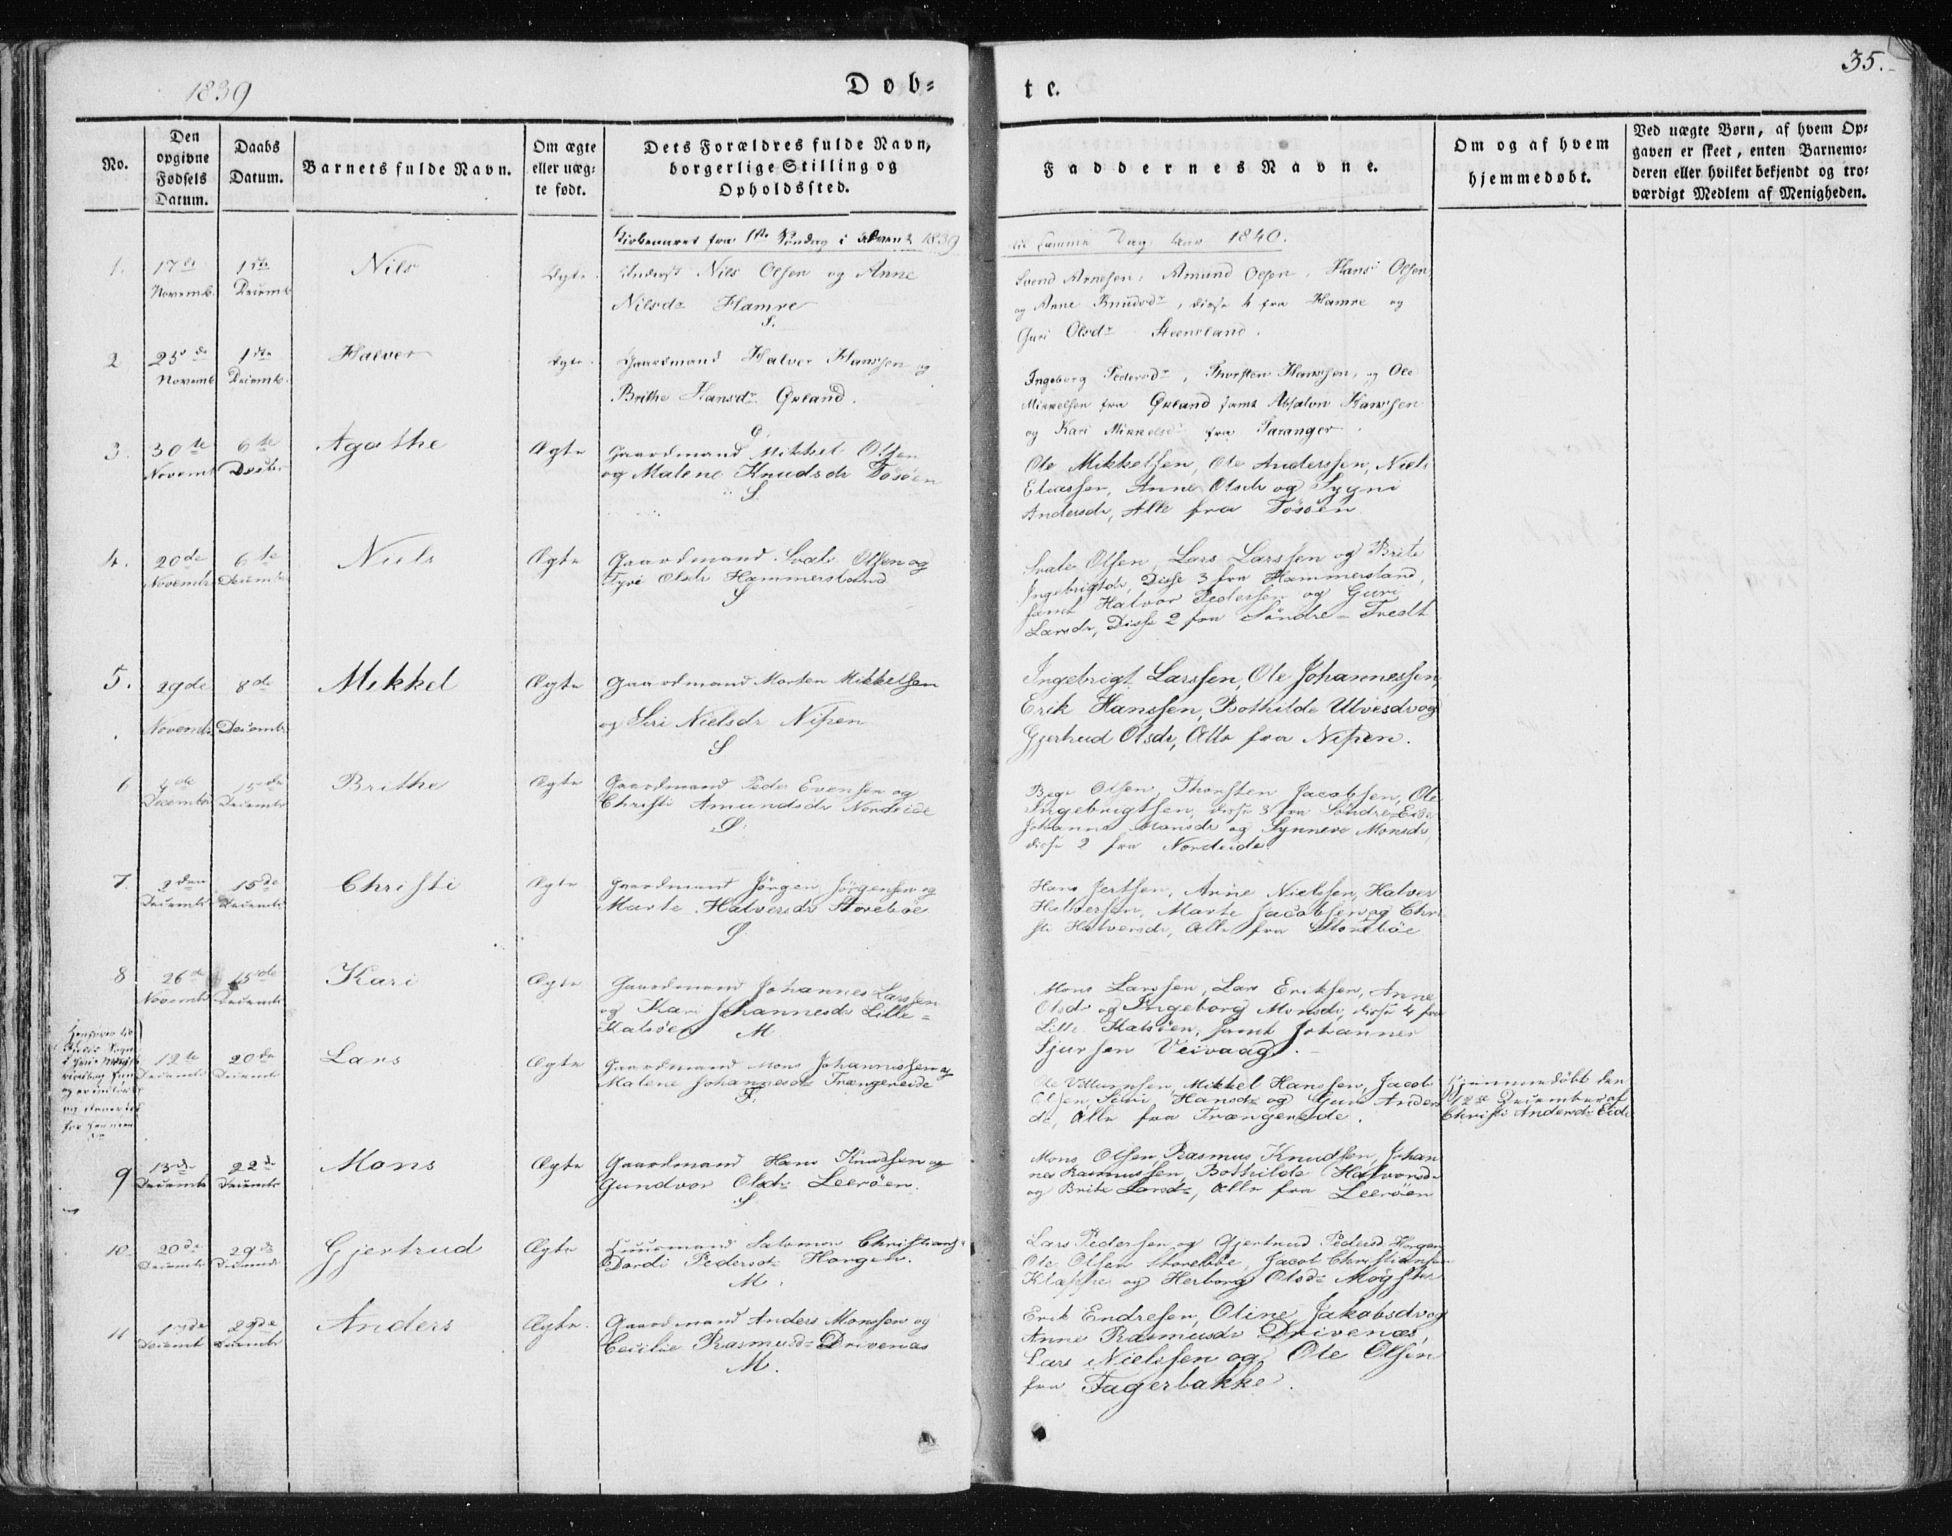 1839
Døb=
te.
35.
No.
Den opgivne Fødsels Datum.
Daabs Datum.
Barnets fulde Navn.
Om ægte eller uægte født.
Dets Forældres fulde Navn,
borgerlige Stilling og
Opholdssted.
Faddernes Navne.
Om og af hvem
hjemmedøbt.
Ved uægte Børn, af hvem Op=
gaven er skeet, enten Barnemo=
deren eller hvilket bekjendt og tro=
værdigt Medlem af Menigheden.
Kirkeaaret fra 1ste Søndag i Advent 1839
til samme Dag Aar 1840.
1. 17de Novemb. 1ste Decemb. Nils Ægte
Nils Olsen og Anne
Nilsdr Hamre
S.
Svend Arnesen, Amund Olsen, Hans Olsen,
og Anne Knudsdr, disse 4 fra Hamre og
Guri Olsdr Steensland.
2 25de Novemb 1ste Decemb. Halver Ægte
Gaardmand Halver Hanssen og
Brithe Hansdr Øxland.
Ingeborg Pedersdr, Thorsten Hanssen, og Ole
Mikkelsen fra Øxland samt Absalon Hanssen
og Kari Mikkelsdr fra Taranger.
3. 30te Novemb 6te Decbr. Agathe Ægte
Gaardmand Mikkel Olsen
og Malene Knudsdr Tøsøen
S
Ole Mikkelsen, Ole Anderssen, Niels
Eliassen, Anne Olsdr og Sygni
Andersdr, Alle fra Tøsøen
4. 20de Novembr 6te Decembr Niels Ægte
Gaardmand Svale Olsen og
Olsdr Hammersland
S
Svale Olsen, Lars Larssen og Brite
Ingebrigtdr, Disse 3 fra Hammersland,
samt Halvor Pedersen og Guri
Larsdr, Disse 2 fra Søndre-Tvedt
5. 29de Novembr 8de Decembr Mikkel Ægte
Gaardmand Morten Mikkelsen
og Siri Nielsdr Nipen
S
Ingebrigt Larssen, Ole Johannessen,
Erik Hanssen, Bothilde Ulvesdr og
Gjertrud Olsdr, Alle fra Nipen.
6 4de Decembr 15de Decembr Brithe Ægte
Gaardmand Peder Evensen og
Christi Amundsdr Nordeide
S.
Olsen, Thorsten Jacobsen, Ole
Ingebrigtsen, disse 3 fra Søndre Eide
Johanne Monsdr og Synneve Monsdr,
disse 2 fra Nordeide.
7. 2den Decembr 15de Decembr Christi Ægte
Gaardmand Jørgen Jørgensen og
Marte Halversdr Storebøe
S.
Hans Jertsen, Arne Nielssen, Halver
Halversen, Marte Jacobsen og Chri
sti Halversdr, Alle fra Storebøe
8 26de Novembr 15de Decembr Kari Ægte
Gaardmand Johannes Larssen
og Kari Johannesdr Lille=
Kalsøen M
Mons Larssen, Lars Eriksen, Anne
Olsdr og Ingeborg Monsdr, disse 4 fra
Lille Kalsøen, samt Johannes
Sjursen Veivaag.
12te Decembr 20de Decembr Lars Ægte
Gaardmand Mons Johannessen og
Malene Johannesdr Trængereide
F.
Mikkel Hanssen, Jacob
Olsen, Siri Hansdr og Guri Anders
dr, Alle fra Trængereide.
Hjemmedøbt den
12te December af
Christi Andersdr Eide
9 13de Decembr 22de Decembr Mons Ægte
Gaardmand Hans Knudssen og
Gundvor Olsdr Leerøen.
S
Mons Olsen, Rasmus Knudsen, Johan
nes Rasmussen, Bothilde Halvorsdr
og Brite Larsdr, Alle fra Leerøen
10. 20de Decembr 29de Decembr Gjertrud Ægte
Huusmand Salomon Christians
Dordi Pedersdr Horgen.
M.
Lars Pedersen og Gjertrud Pedersd Horgen
Ole Olsen Storebøe, Jacob Christiansen
Klæppe og Herborg Olsdr Møgster
11 17de Decembr 29de Decembr Anders Ægte.
Gaardmand Anders Monssen og
Cecilie Rasmusdr Drivenæs
M.
Erik Endresen, Oline Jakobsdr og
Anne Rasmusdr Drivenæs,
Lars Nielssen og Ole Olsen
fra Fagerbakke.